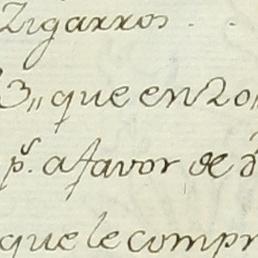 Zigarros . .
3,, que en 20,,
p.^s a favor de d
que le compr